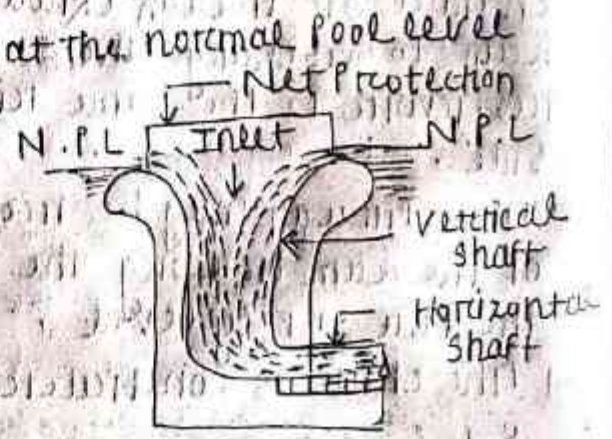 at the normal pool level
Net Protection
N.P.L
Inlet
N.P.L
Vertical
shaft
Horizontal
shaft